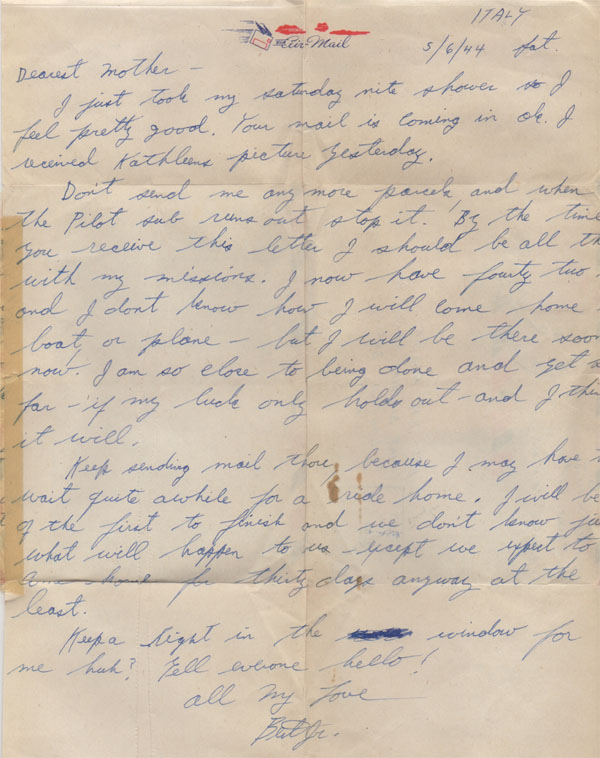 ITALY
Air-Mail
5/6/44 Sat.
Dearest Mother -
I just took my saturday nite shower so I
feel pretty good. Your mail is coming in ok. I
received Kathleens picture yesterday.
Don't send me any more parcels, and when
the Pilot sub runs out stop it. By the time
you receive this letter I should be all th
with my missions. I now have fourty two
and I dont know how I will come home
boat or plane - but I will be there soon
now. I am so close to being done and yet s
far - if my luck only holds out - and I thi
it will.
Keep sending mail thou, because I may have t
wait quite awhile for a ride home. I will be
of the first to finish and we don't know ju
what will happen to us - except we expect to
home for thirty days anyway at the
least.
Keep a light in the window for
me huh? Tell everone hello!
all My Love
Bert Jr.